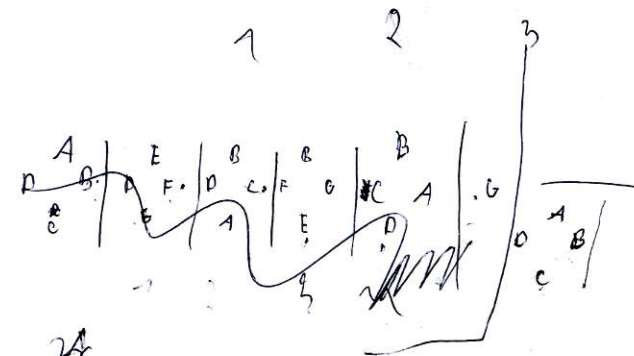 1 2 3
A E B B B
D B. D F. D C. F G C A . G A
C G A E D D B
C